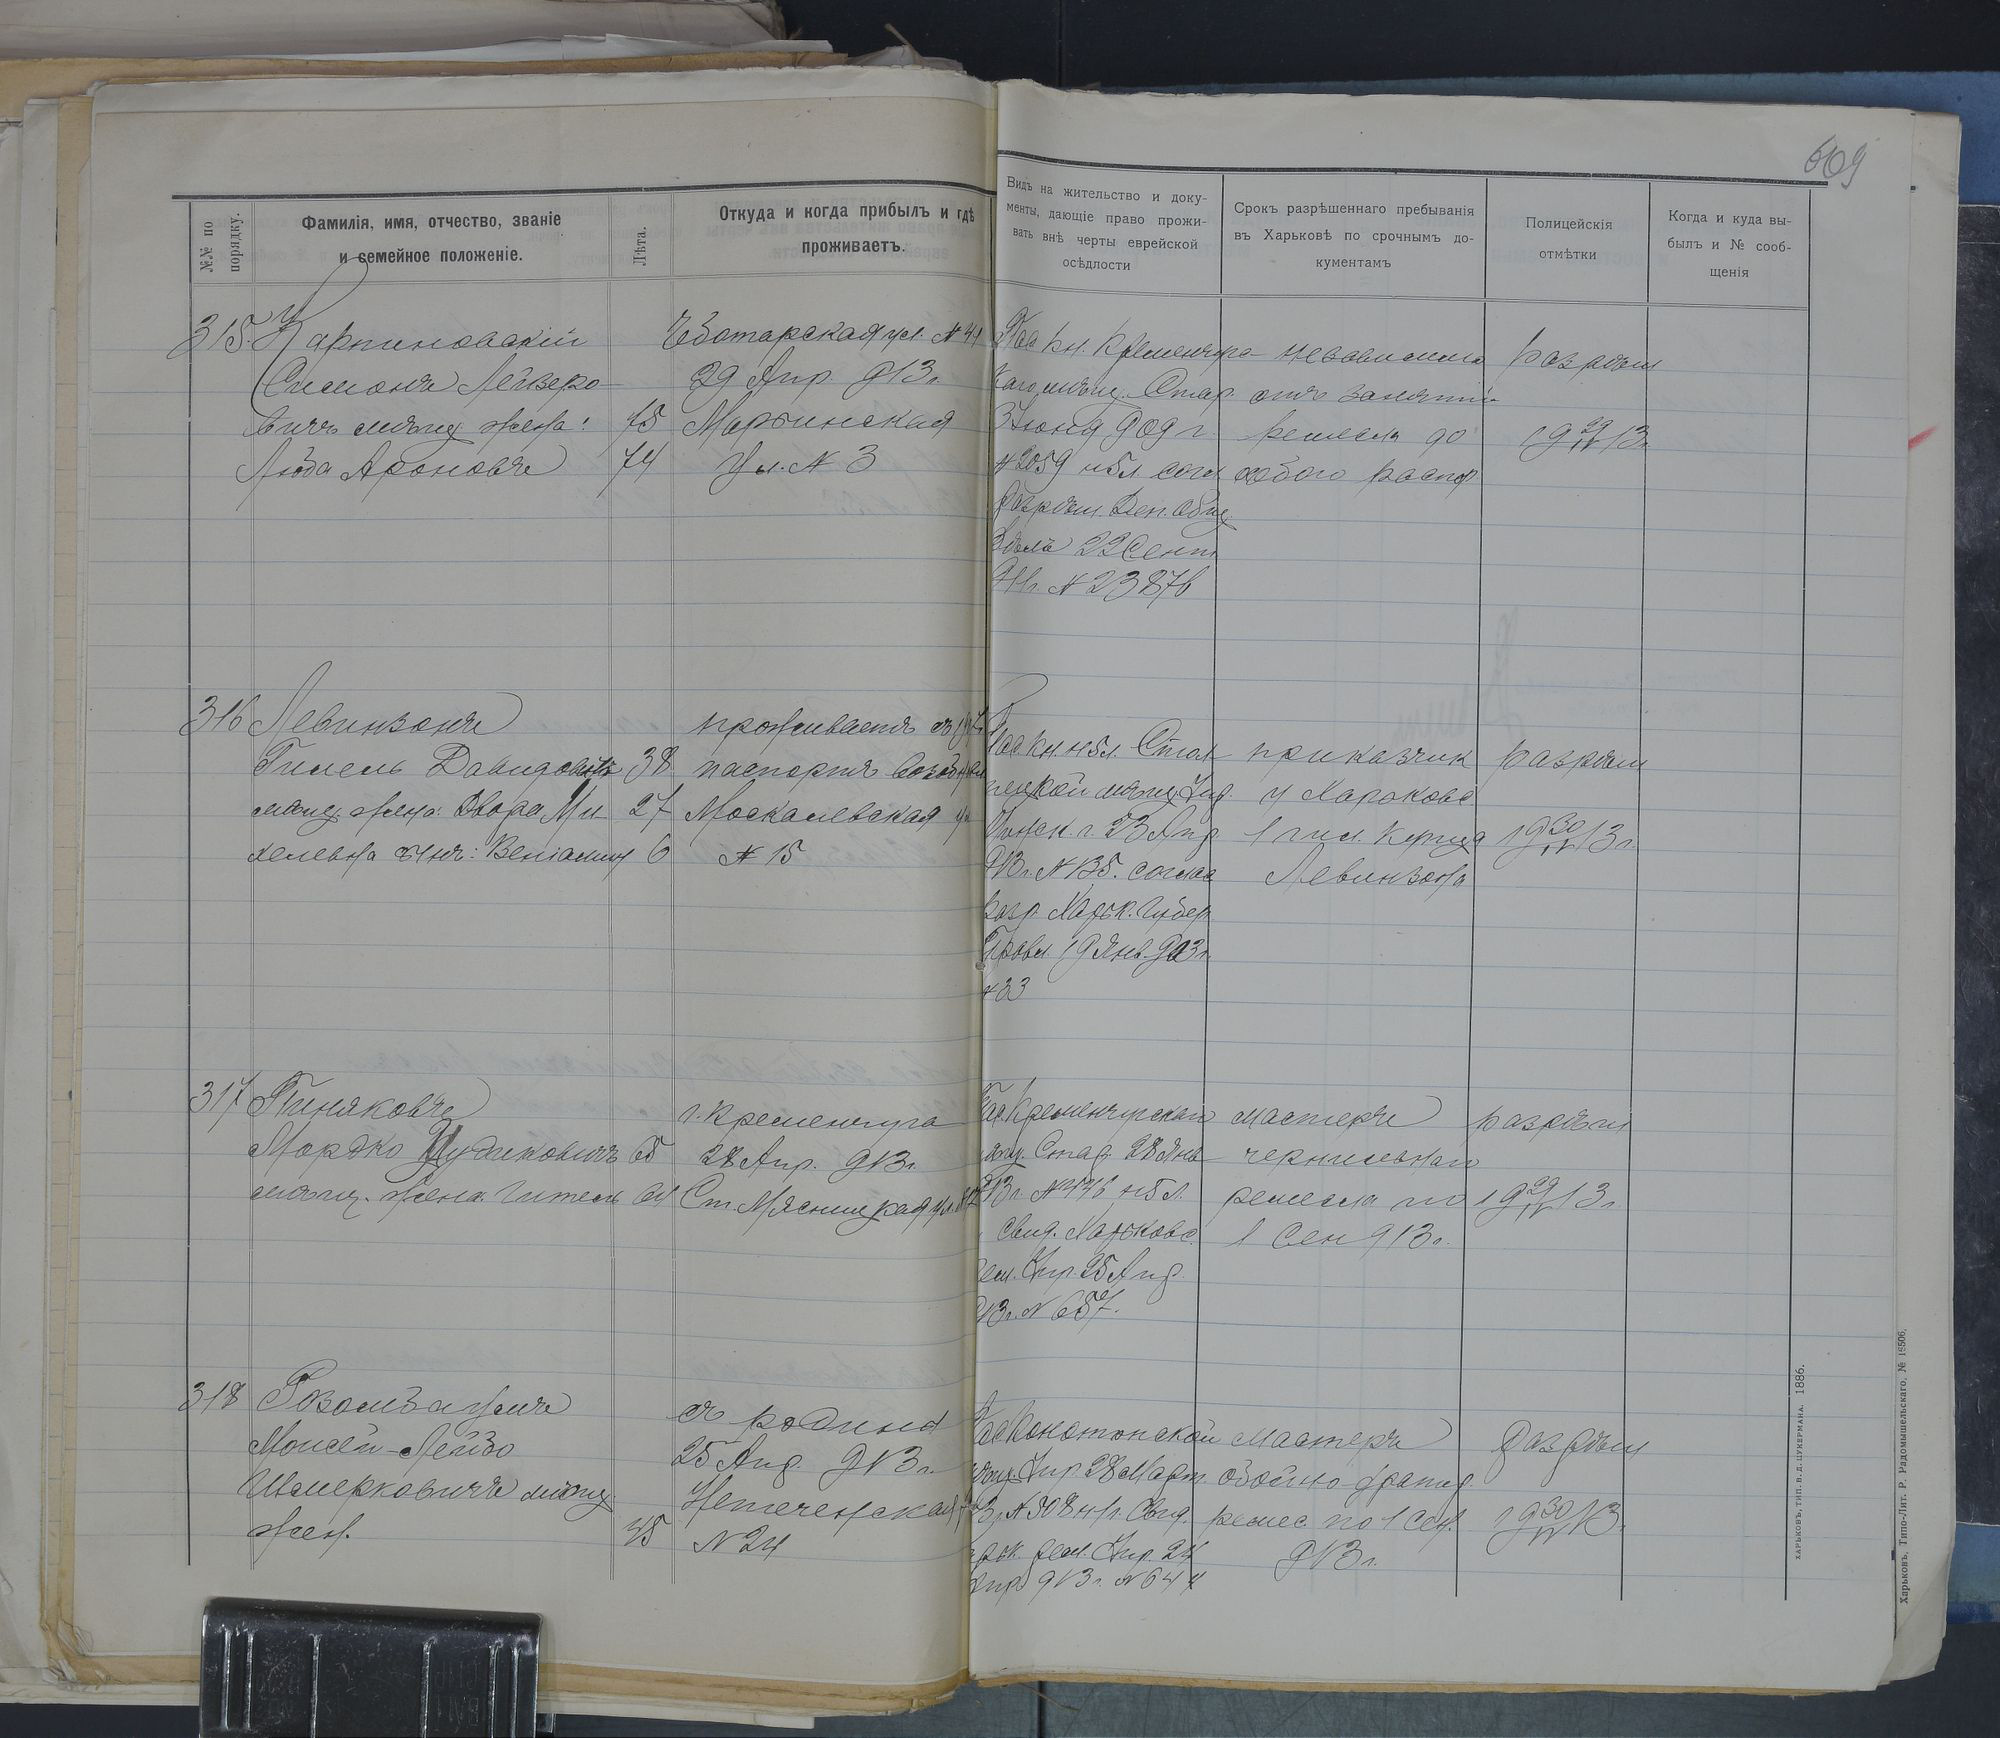 609
№№ по порядку.
Фамилія, имя, отчество, званіе
и семейное положеніе.
Лѣта.
Откуда и когда прибылъ и гдѣ
проживаетъ.
Видъ на жительство и доку-
менты, дающіе право прожи-
вать внѣ черты еврейской
осѣдлости
Срокъ разрѣшеннаго пребыванія
въ Харьковѣ по срочнымъ до-
кументамъ
Полицейскія
отмѣтки
Когда и куда вы-
былъ и № сооб-
щенія
315. Карпиновскій
Симонъ Лейзеро-
вичъ мѣщ жена: 75
Люба Ароновна 74
Чеботарская ул. № 41
29 Апр. 913 г.
Марьинская
Ул. № 3
Пас кн. Кременчуг-
каго мѣщ. Стар.
3 Іюня 909 г.
№ 2059 и б л. согл
разрѣш. Деп. Общ
Дѣлъ 22 Сент
911 г. № 23876
независимо
отъ занятій
ремесла до
особого распор
разрѣш
19 29/IV 13 г.
316 Левинзонъ
Гилель Давидовичъ 38
мѣщ. жена: Двора Ми- 27
хелевна сынъ: Веніамин 6
проживаетъ съ 1907
паспортъ возобнов
Москалевская ул
№ 15
Пас кн. и б л. Стол
пецкой мѣщ. Упр
Минск. г. 23 Апр
913 г. № 135. соглас
разр. Харьк. Губер
Правл 19 Янв 903 г.
№ 33
приказчик
у Харьковс
1 гил. Купца
Левинзона
разрѣш
19 30/IV 13 г.
317 Пиняковъ
Мордко Иудиковичъ 65
мѣщ. жена: Гитель 61
г. Кременчуга
28 Апр. 913 г.
Ст. Мясницкая ул.
Пас. Кременчугскаго
мѣщ. Стар. 28 Янв
913 г. № 446 и б л.
Свид. Харьковс.
Рем. Упр. 25 Апр.
913 г. № 657.
мастеръ
чернильнаго
ремесла по
1 Сен 913 г.
разрѣш
19 29/IV 13 г.
318 Розомзагумъ
Моисей-Лейзо
Шмерковичъ мѣщ
жен. 45
съ родины
25 Апр. 913 г.
Нетеченская
№ 24
Пас Конотопской
мѣщ Упр 28 Март
№ 508 Свид.
Харьк. рем. Упр. 24
Апр 913 г. № 644
мастеръ
обойно-драпир.
ремес. по 1 Сен.
913 г.
разрѣш
19 30/IV 13.
ХАРЬКОВЪ, ТИП. В. Д. ЦУКЕРМАНА. 1886.
Харьковъ, Типо-Лит. Р. Радомышельскаго, № 18506.